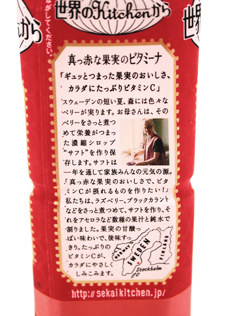 世界のKitchenから
ながしてください。
真っ赤な果実のビタミーナ
「ギュッとつまった果実のおいしさ、
カラダにたっぷりビタミンC」
スウェーデンの短い夏、森には色々な
ベリーが実ります。お母さんは、その
ベリーをさっと煮つ
めて栄養がつまっ
た濃縮シロップ
“サフト”を作り保
存します。サフトは
一年を通して家族みんなの元気の源。
「真っ赤な果実のおいしさで、ビタ
ミンCが摂れるものを作りたい!」
私たちは、ラズベリー、ブラックカラント
などをさっと煮つめて、サフトを作り、そ
れをアセロラなど数種の果汁と純水で
割りました。果実の甘酸っ
ぱい味わいで、後味すっ
きり。たっぷりの
ビタミンCが、
カラダにやさしく
しみこみます。
NORWAY
SWEDEN
FINLAND
Stockholm
http://sekaikitchen.jp/
世界のKitchenから